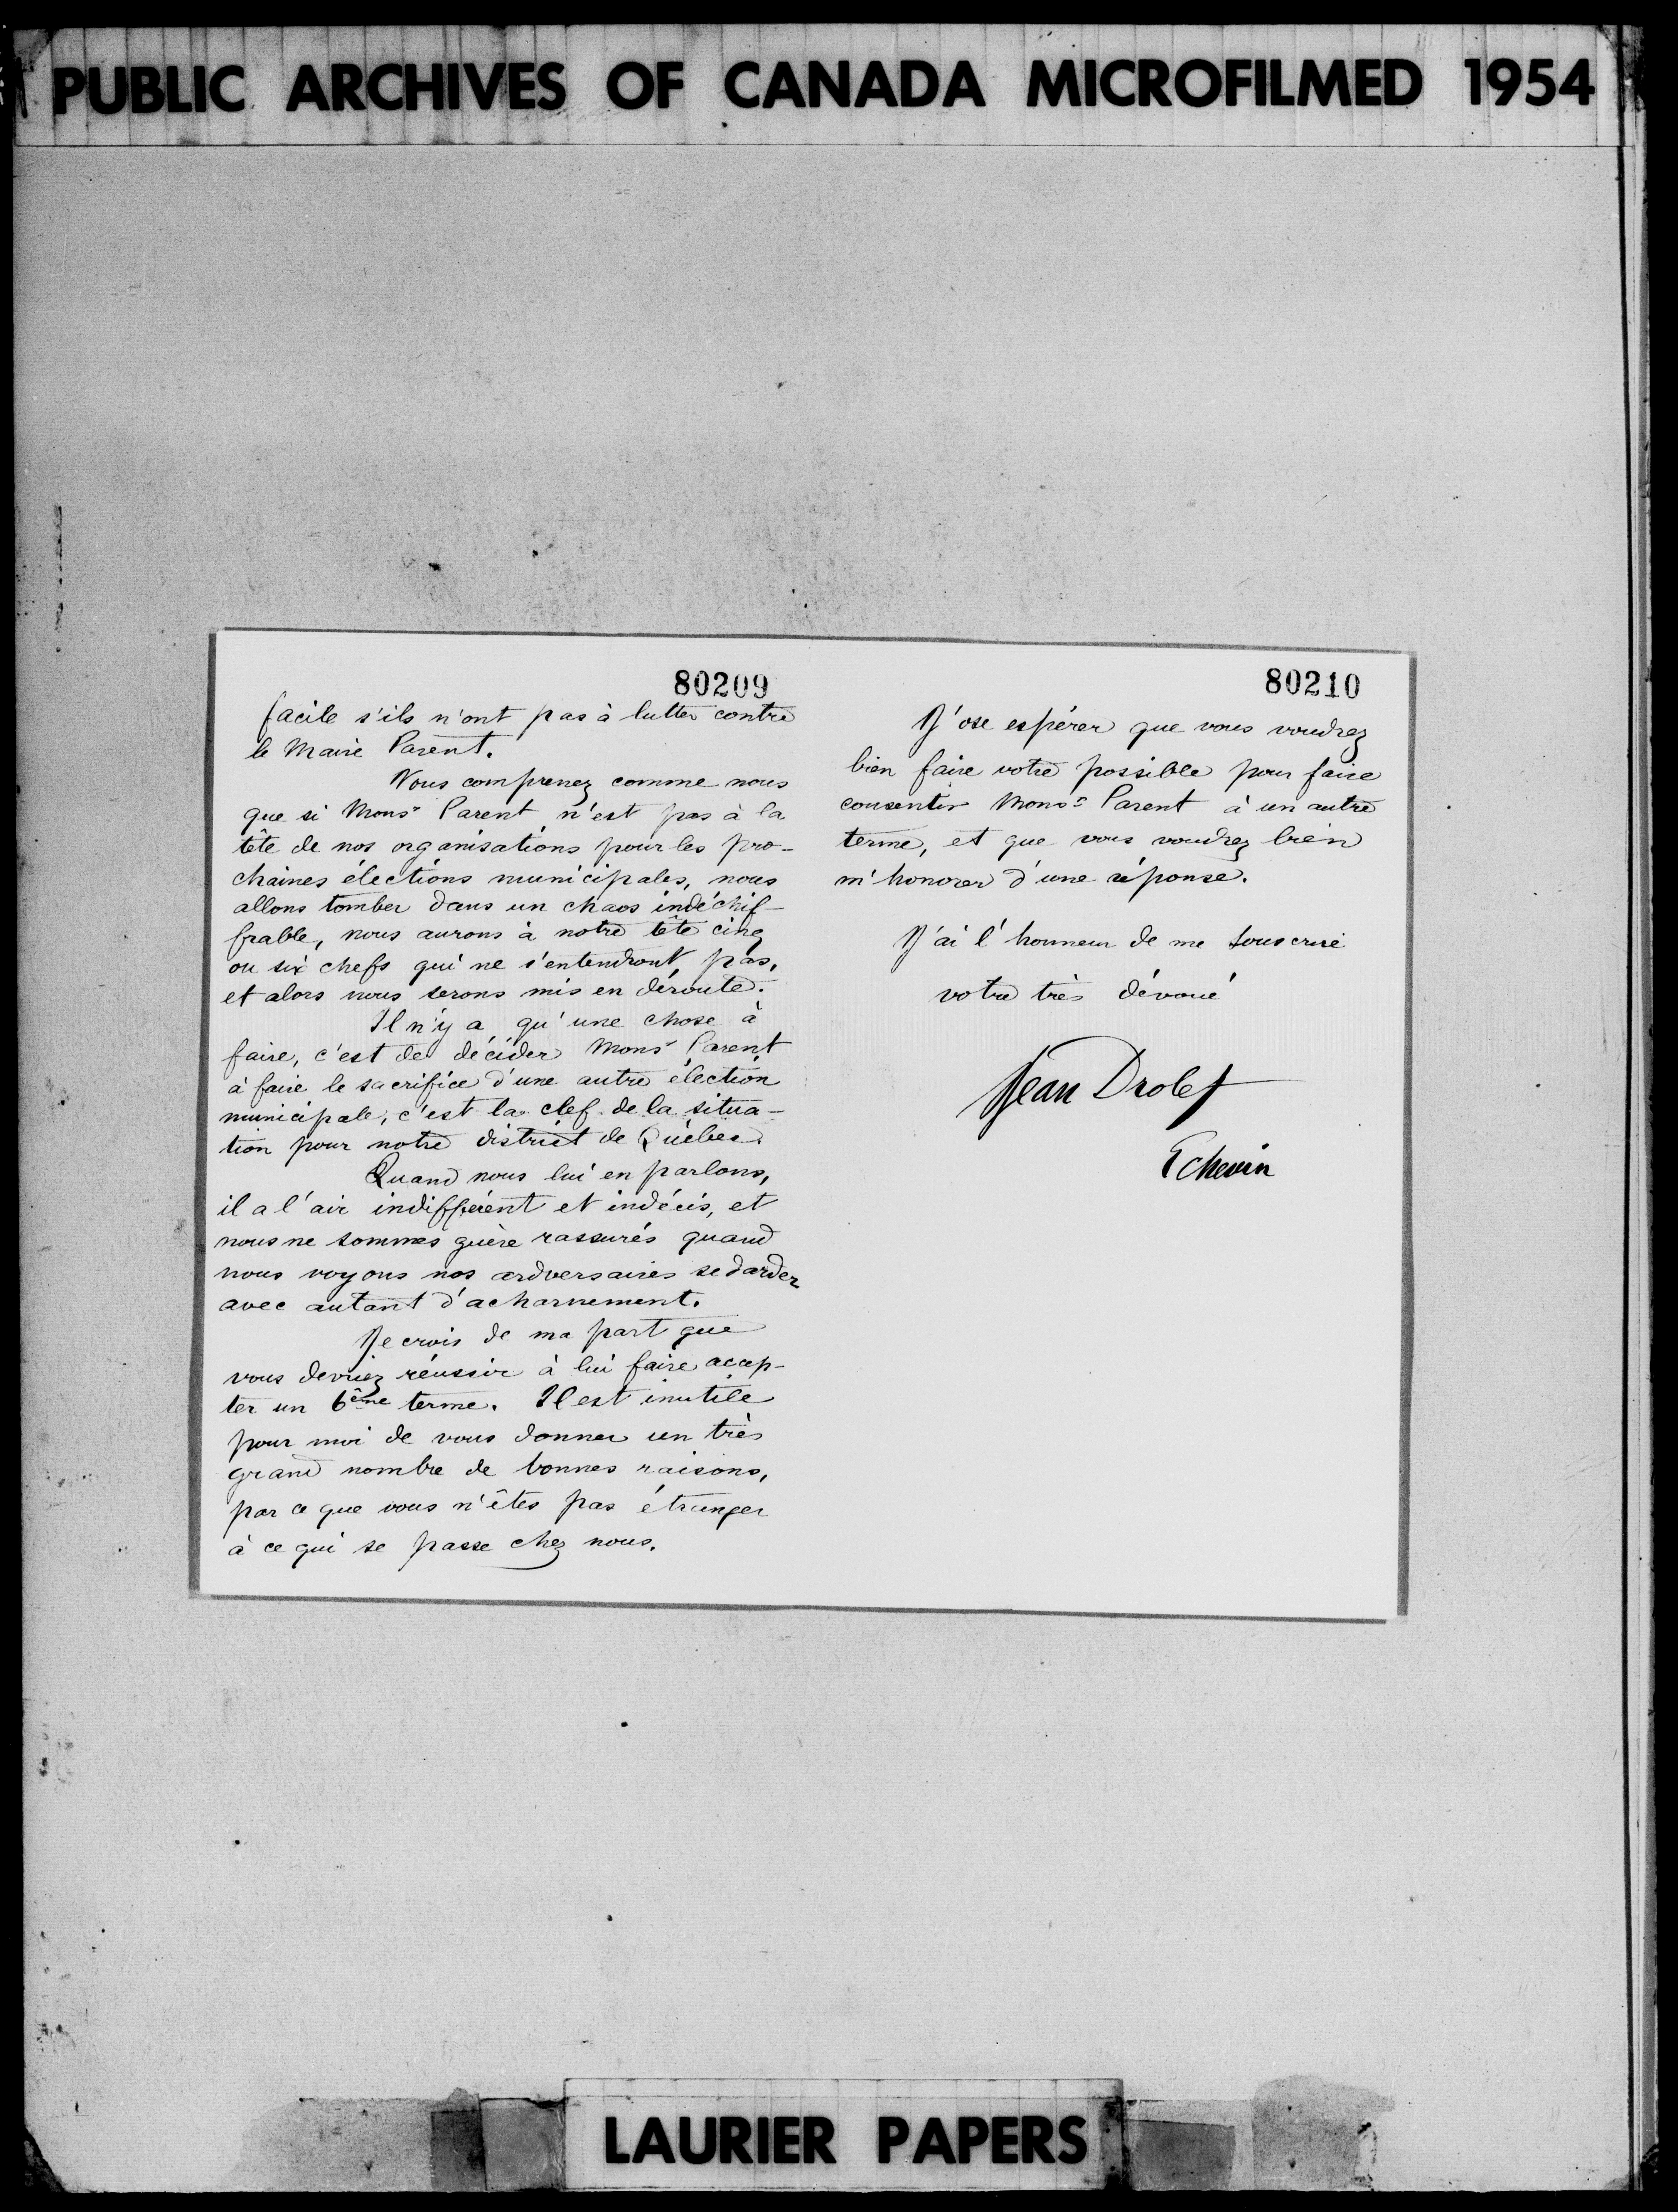 PUBLIC ARCHIVES OF CANADA MICROFILMED 1954
80209
facile s'ils n'ont pas à lutter contre
le Maire Parent.
Vous comprenez comme nous
que si Monsr Parent n'est pas à la
tête de nos organisations pour les pro-
chaines élections municipales, nous
allons tomber dans un chaos indéchif-
frable, nous aurons à notre tête cinq
ou six chefs qui ne s'entendront pas,
et alors nous serons mis en déroute.
Il n'y a qu'une chose à
faire, c'est de décider Monsr Parent
à faire le sacrifice d'une autre élection
municipale, c'est la clef de la situa-
tion pour notre district de Québec.
Quand nous lui en parlons,
il a l'air indifférent et indécis, et
nous ne sommes guère rassurés quand
nous voyons nos adversaires se darder
avec autant d'acharnement.
Je crois de ma part que
vous devriez réussir à lui faire accep-
ter un 6ème terme. Il est inutile
pour moi de vous donner un très
grand nombre de bonnes raisons,
par ce que vous n'êtes pas étranger
à ce qui se passe chez nous.
80210
J'ose espérer que vous voudrez
bien faire votre possible pour faire
consentir Monsr Parent à un autre
terme, et que vous voudrez bien
m'honorer d'une réponse.
J'ai l'honneur de me souscrire
votre très dévoué
Jean Drolet
Echevin
LAURIER PAPERS